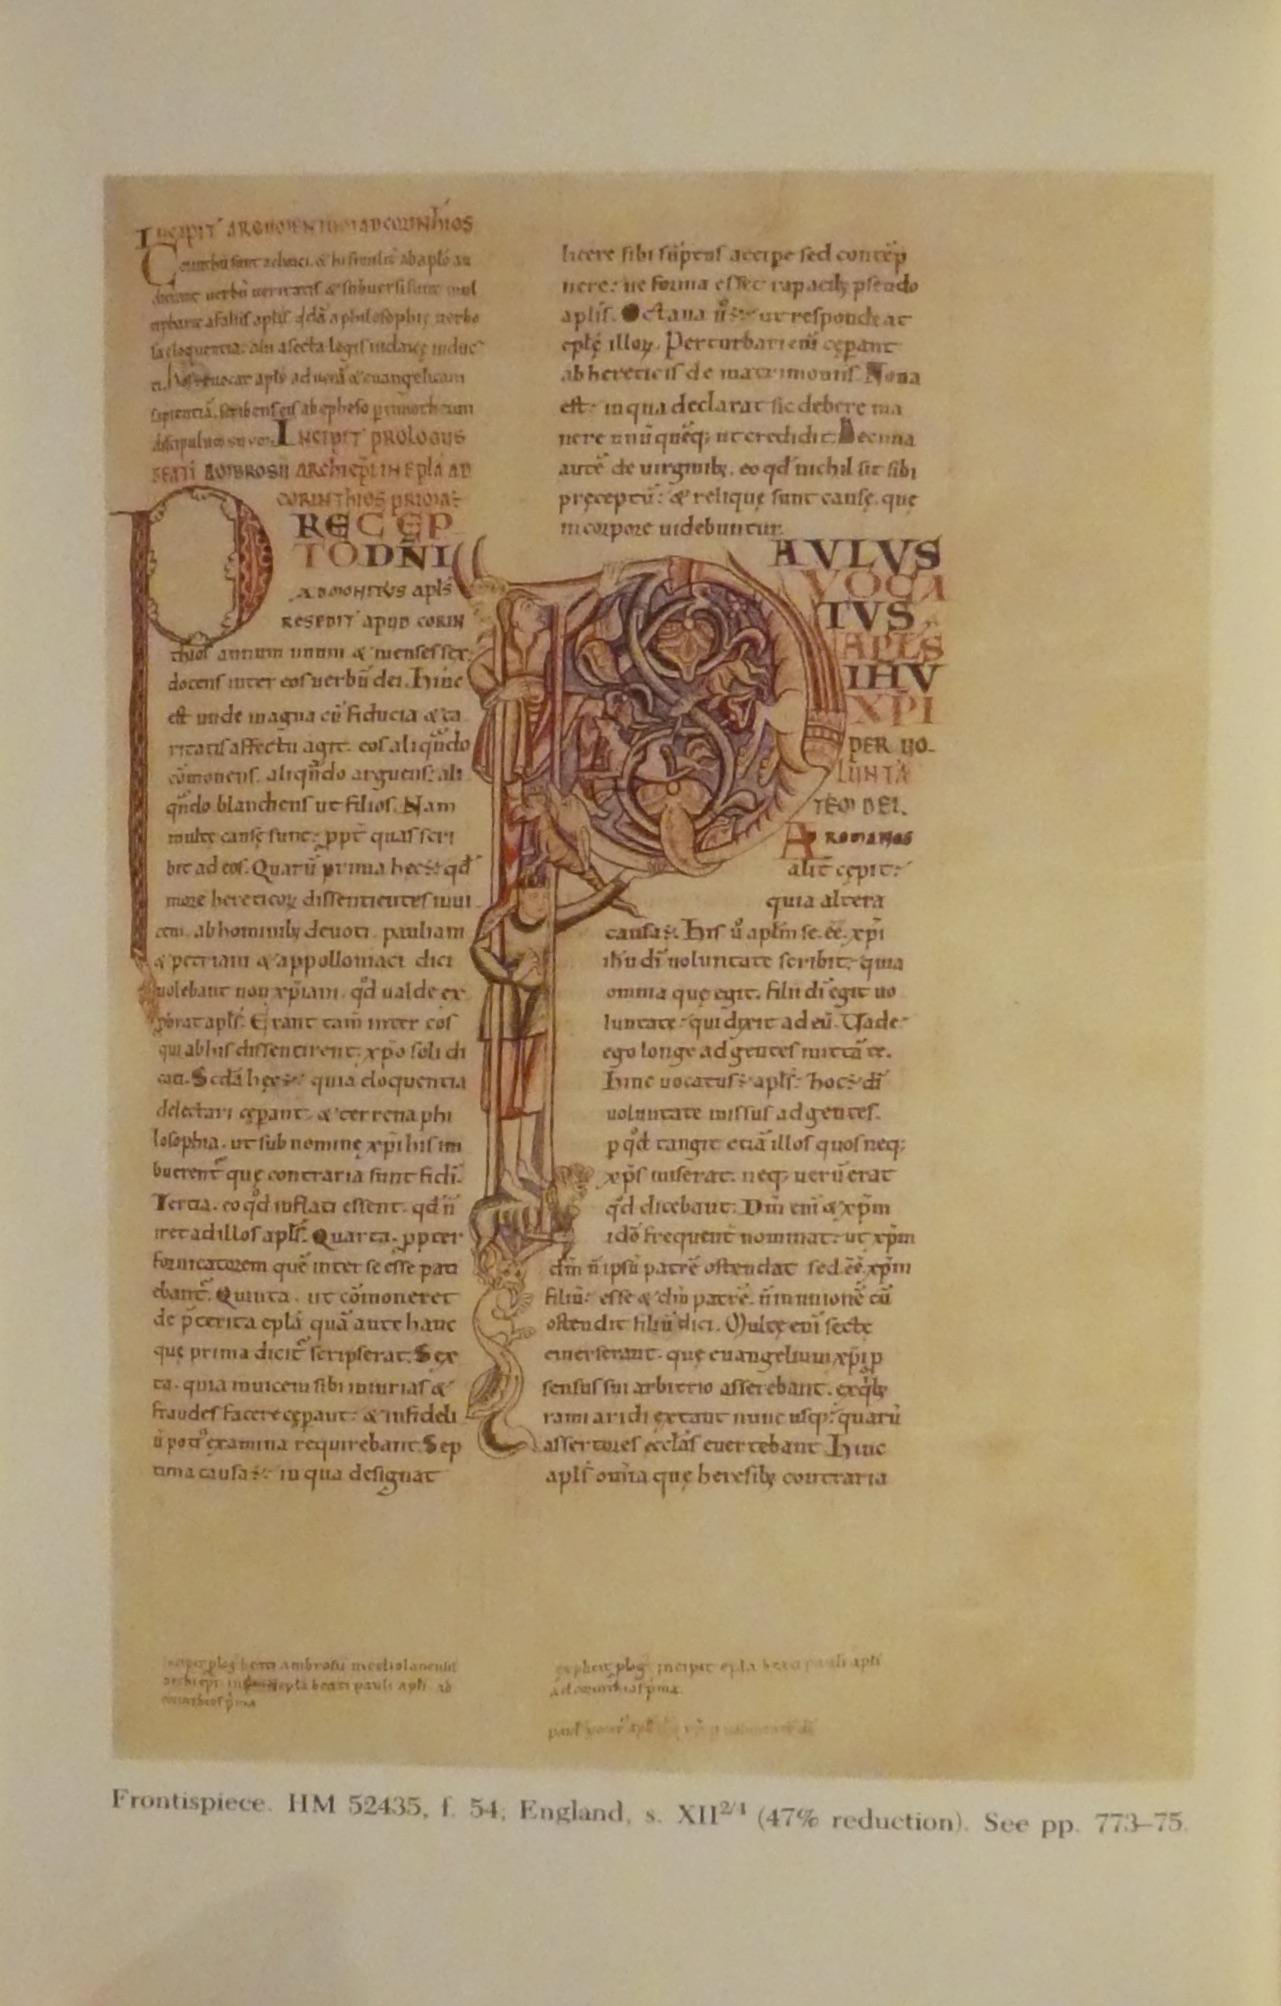 INCIPIT ARGUMENTUM AD CORINTHIOS
Corinthii sunt achaici. & hi similit̄ ab aplō au
dierunt uerbū ueritatis & subuersi sunt mul
a falsis aplīs. qdā a philosophię uerbo
sa eloquentia. alii a secta legis iudaicę induc
ti. hos reuocat apls̄ ad uerā & euangelicam
sapientiā. scribens eis ab epheso p timotheum
discipulum suum. INCIPIT PROLOGUS
BEATI AMBROSII ARCHIEPI IN EPLA AD
CORINTHIOS PRIMA
PRECEP
TO DN̄I
ADMONITUS apls̄
RESEDIT APUD CORIN
thios annum unum & menses sex
docens inter eos uerbū dei. Hinc
est unde magna cū fiducia & ca
ritatis affectu agit. eos aliqn̄do
cōmonens. aliqn̄do arguens. ali
qn̄do blandiens ut filios. Nam
multę causę sunt. ppt̄ quas scri
bit ad eos. Quarū prima hec.÷ qd̄
more hereticoꝝ dissentientes
ab hominibꝫ deuoti. pauliani
& petriani & appolloniaci dici
uolebant non xp̄iani. qd̄ ualde ex
apls̄. Erant tam̄ inter eos
qui ab his dissentirent. xp̄o soli di
cati. Scdā hęc.÷ quia eloquentia
delectari cępant. & terrena phi
losophia. ut sub nomine xp̄i his im
buerent̄ quę contraria sunt fidei.
Tercia. eo qd̄ inflati essent. qd̄ n̄
iret ad illos apls̄. Quarta. ppter
fornicatorem quē inter se esse pati
ebant̄. Quinta. ut cōmoneret
de p̄terita eplā quā ante hanc
quę prima dicit̄ scripserat. Sex
ta. quia inuicem sibi iniurias &
fraudes facere cępant. & infideli
ū poti᾽ examina requirebant. Sep
tima causa.÷ in qua designat
licere sibi sūptus accipe sed contēp
nere. ne forma esset rapacibꝫ pseudo
aplīs. Octaua ū.÷ ut respondeat
eplę illoꝝ. Perturbari eni cępant
ab hereticis de matrimoniis. Nona
est. in qua declarat sic debere ma
nere unūquęqꝫ ut credidit. Decima
autē de uirginibꝫ. eo qd̄ nichil sit sibi
pręceptū. & relique sunt causę. que
in corpore uidebuntur.
AVLVS
VOCA
TVS
APLS
IHV
XPI
PER UO-
LUNTA
TEM DEI.
AD ROMANOS
alit̄ cępit.
quia altera
causa.÷ His ū aplm̄ se. ēē. xp̄i
ihū dī uoluntate scribit. quia
omnia quę egit. filii dī egit uo
luntate. qui dixit ad eū. Uade
ego longe ad gentes mittā te.
Hinc uocatus.÷ apls̄. hoc.÷ dī
uoluntate missus ad gentes.
p qd̄ tangit etiā illos quos neqꝫ
xp̄s miserat. neqꝫ uerū erat
qd̄ dicebant. Dm̄ eni & xp̄m
idō frequent̄ nominat. ut xp̄m
dm̄ n̄ ipsū patrē ostendat sed. ēē. xp̄m
filiū. esse & dm̄ patrē. n̄ in unionē cū
ostendit filiū dici. Multę eni sectę
emerserant. quę euangelium xp̄i p
sensus sui arbitrio asserebant. exqibꝫ
rami aridi extant nunc usqꝫ. quarū
assertores ecclas euertebant. Hinc
apls̄ omīa quę heresibꝫ contraria
incipit ploḡ beati ambrosii mediolanensis
archiepi. in epla beati pauli apli. ad
corinthios p̄ma
explicit ploḡ incipit epla beati pauli apli
ad corinthios p̄ma.
Frontispiece. HM 52435, f. 54; England, s. XII2/4 (47% reduction). See pp. 773–75.